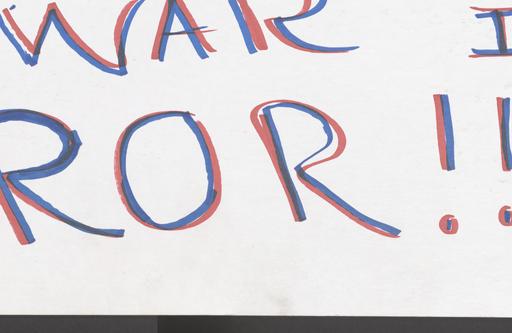 WAR I
ROR!!